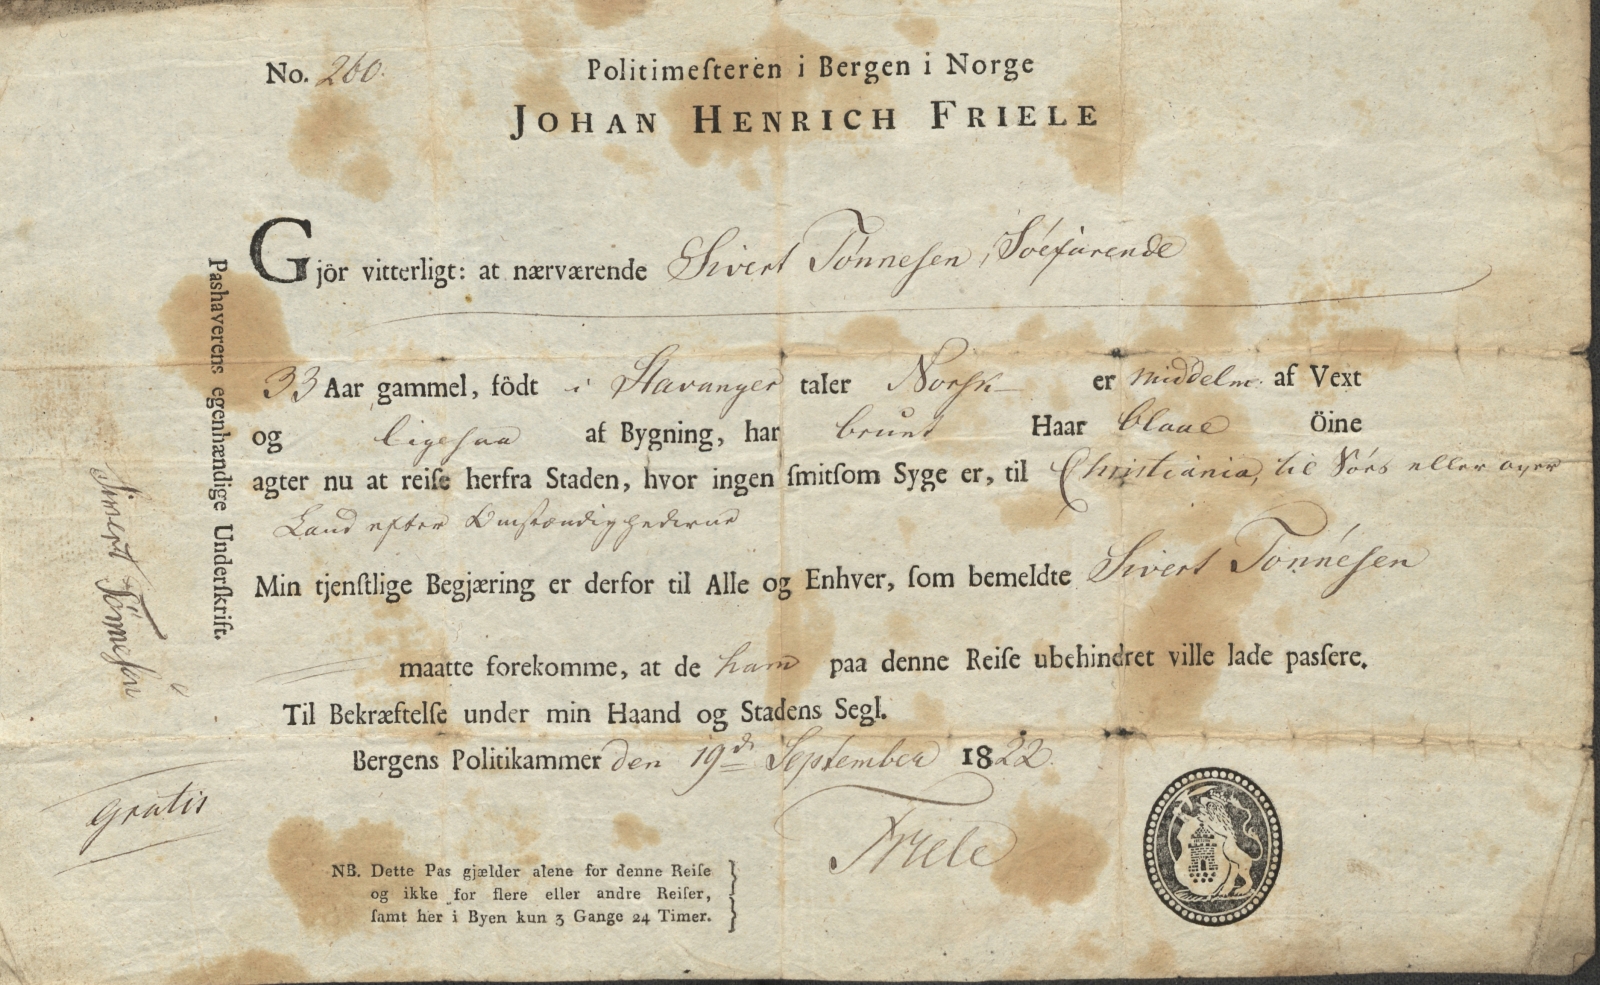 No. 260.
Politimeſteren i Bergen i Norge
JOHAN HENRICH FRIELE
Gjör vitterligt: at nærværende Sivert Tønnesen, Søefarende
33 Aar gammel, födt i Stavanger taler Norsk er middelm. af Vext
og ligesaa af Bygning, har brunt Haar blaae öine
agter nu at reiſe herfra Staden, hvor ingen ſmitſom Syge er, til Christiania, til Søes eller over
Land efter Omstændighederne
Min tjenſtlige Begjæring er derfor til Alle og Enhver, ſom bemeldte Sivert Tønnesen
maatte forekomme, at de ham paa denne Reiſe ubehindret ville lade paſſere.
Til Bekræftelſe under min Haand og Stadens Segl.
Bergens Politikammer den 19de September 1822.
Friele
NB. Dette Pas gjælder alene for denne Reiſe
og ikke for flere eller andre Reiſer,
ſamt her i Byen kun 3 Gange 24 Timer.
Pashaverens egenhændige Underſkriſt.
Sivert Tønnesen
Gratis